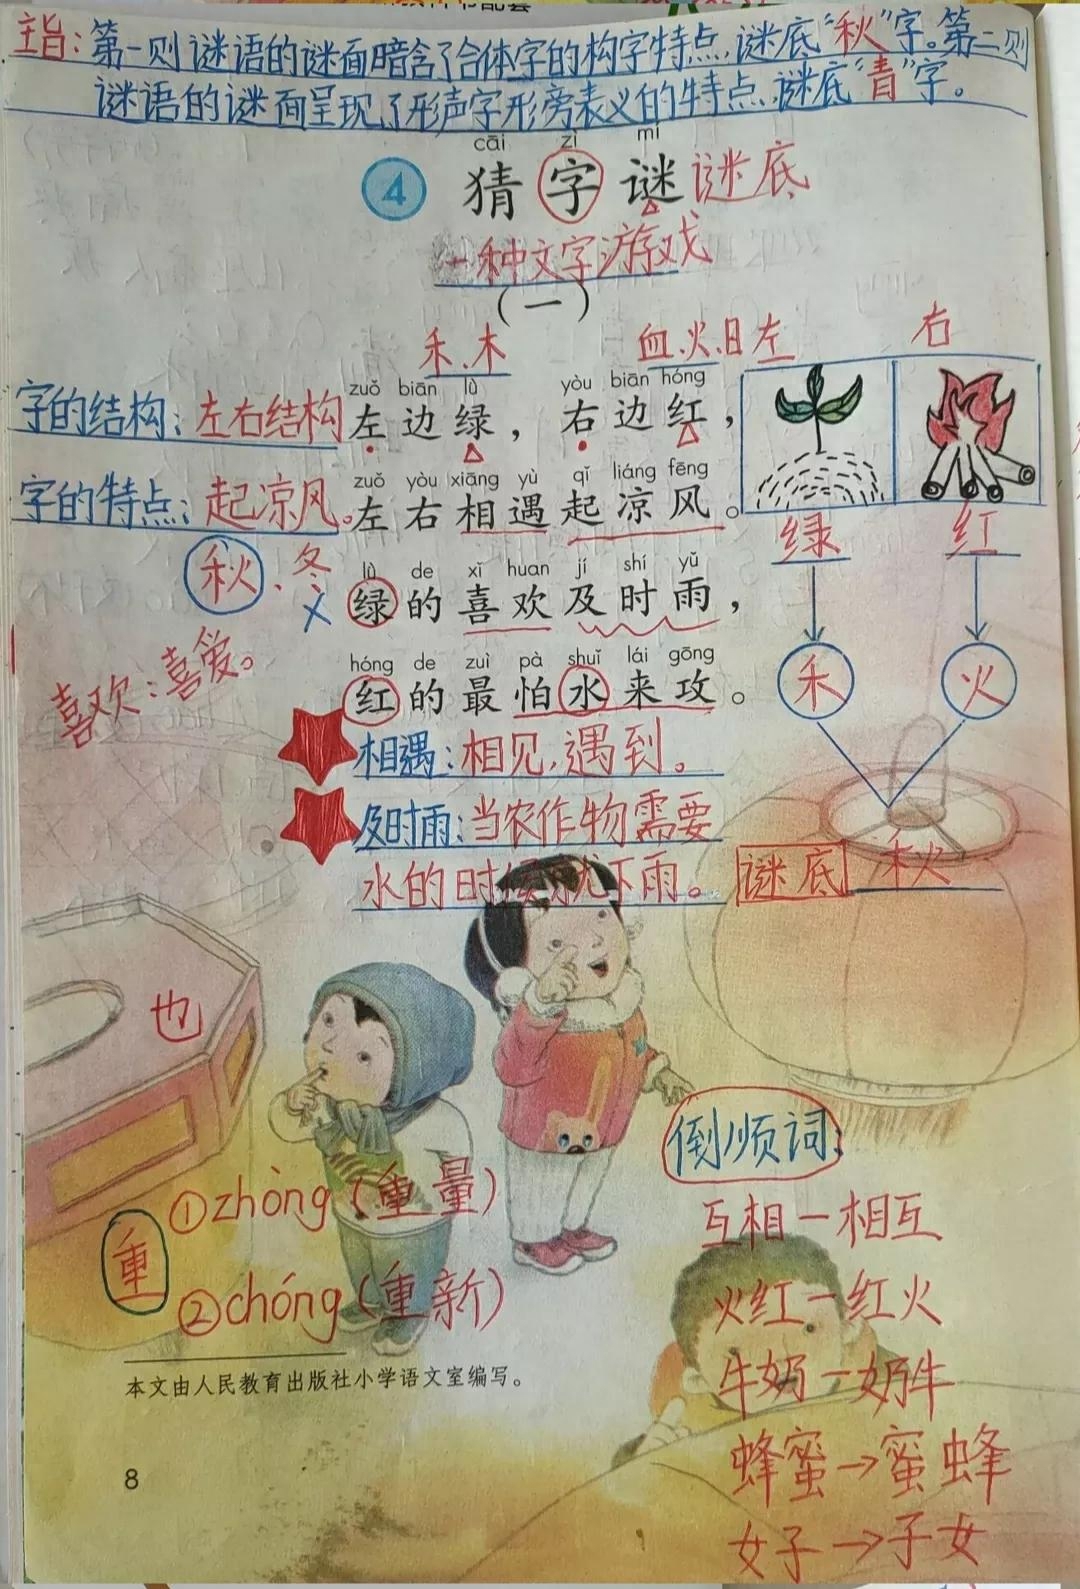 主旨:第一则谜语的谜面暗含了合体字的构字特点,谜底"秋"字。第二则
谜语的谜面呈现了形声字形旁表义的特点,谜底"青"字。
cāi zì mí
4 猜字谜 谜底
一种文字游戏
(一)
禾、木 血、火、日 左 右
zuǒ biān lǜ yòu biān hóng
字的结构:左右结构 左边绿,右边红,
zuǒ yòu xiāng yù qǐ liáng fēng
字的特点:起凉风。左右相遇起凉风。
绿 红
秋、冬
lǜ de xǐ huan jí shí yǔ
绿的喜欢及时雨,
喜欢:喜爱。
hóng de zuì pà shuǐ lái gōng
红的最怕水来攻。
禾 火
相遇:相见,遇到。
及时雨:当农作物需要
水的时候就下雨。
谜底 秋
也
倒顺词:
重
①zhòng(重量)
②chóng(重新)
互相一相互
火红一红火
牛奶一奶牛
蜂蜜→蜜蜂
女子→子女
本文由人民教育出版社小学语文室编写。
8